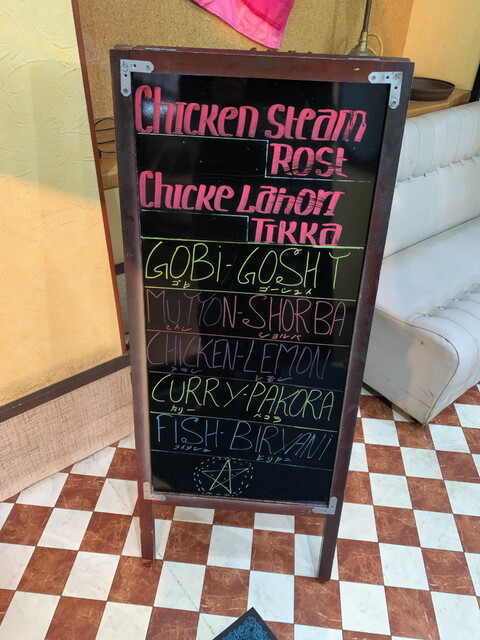 Chicken Steam
Rost
Chicke Lahori
Tikka
GOBI-GOSHT
ゴビ ゴーシュト
MUTTON-SHORBA
ショルバ
CHICKEN-LEMON
チキン レモン
CURRY-PAKORA
カリー パコラ
FISH-BIRYANI
フィッシュ ビリヤニ